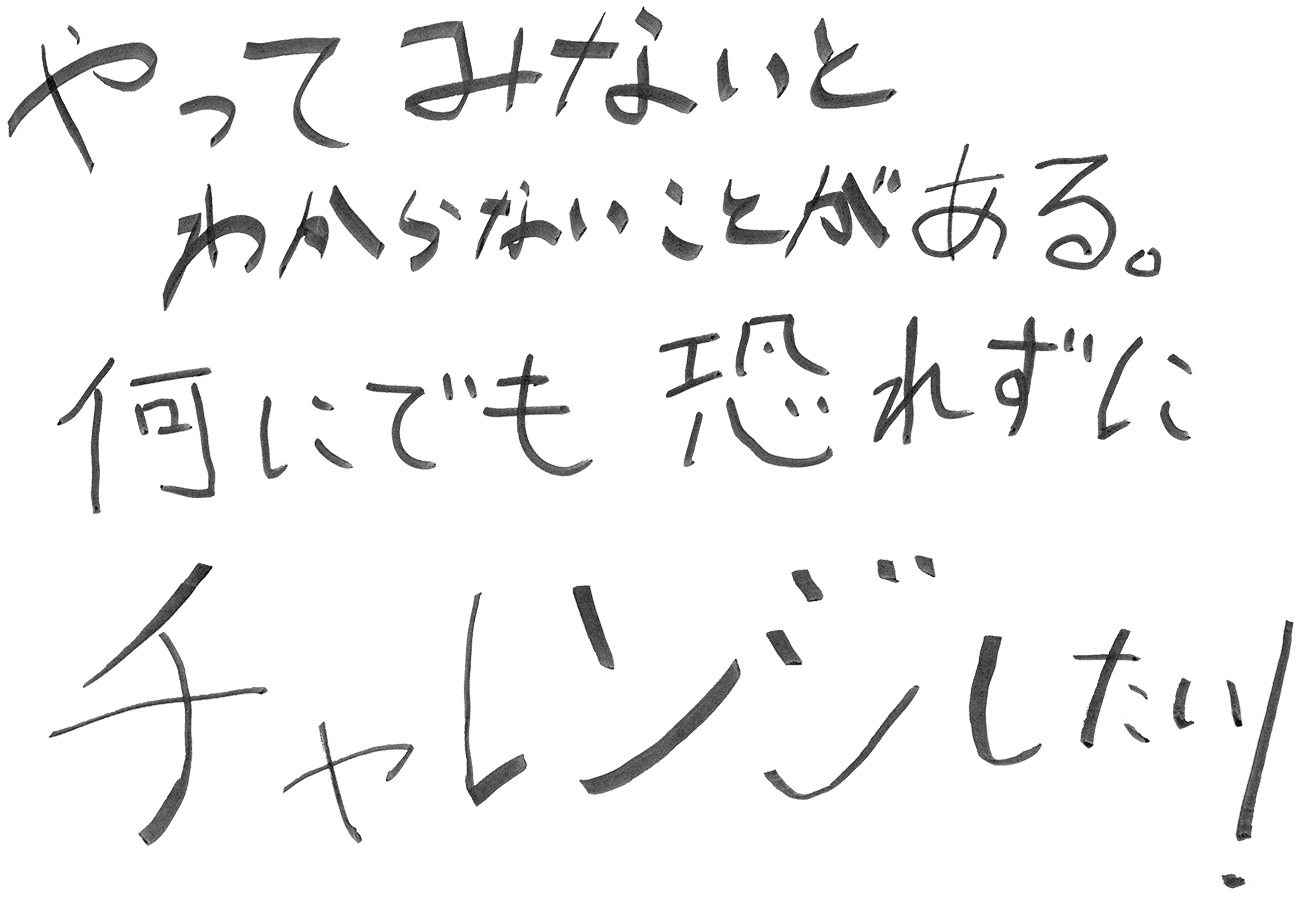 やってみないと
わからないことがある。
何にでも恐れずに
チャレンジしたい!